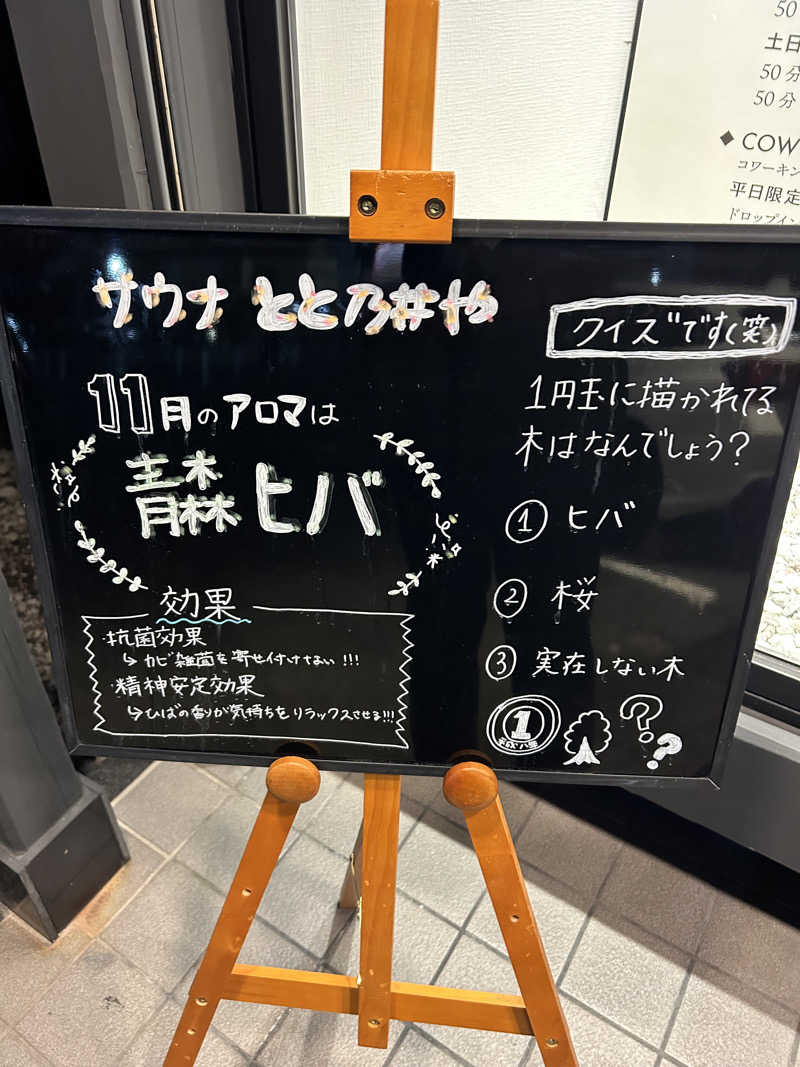 50
土日
50分
50分
◆ COW
コワーキン
平日限定
ドロップイン
サウナ とと乃井や
11月のアロマは
青森ヒバ
効果
・抗菌効果
↳カビ雑菌を寄せ付けない!!!
・精神安定効果
↳ひばの香りが気持ちをリラックスさせる!!!
クイズです(笑)
1円玉に描かれてる
木はなんでしょう?
① ヒバ
② 桜
③ 実在しない木
1
平成八年
??